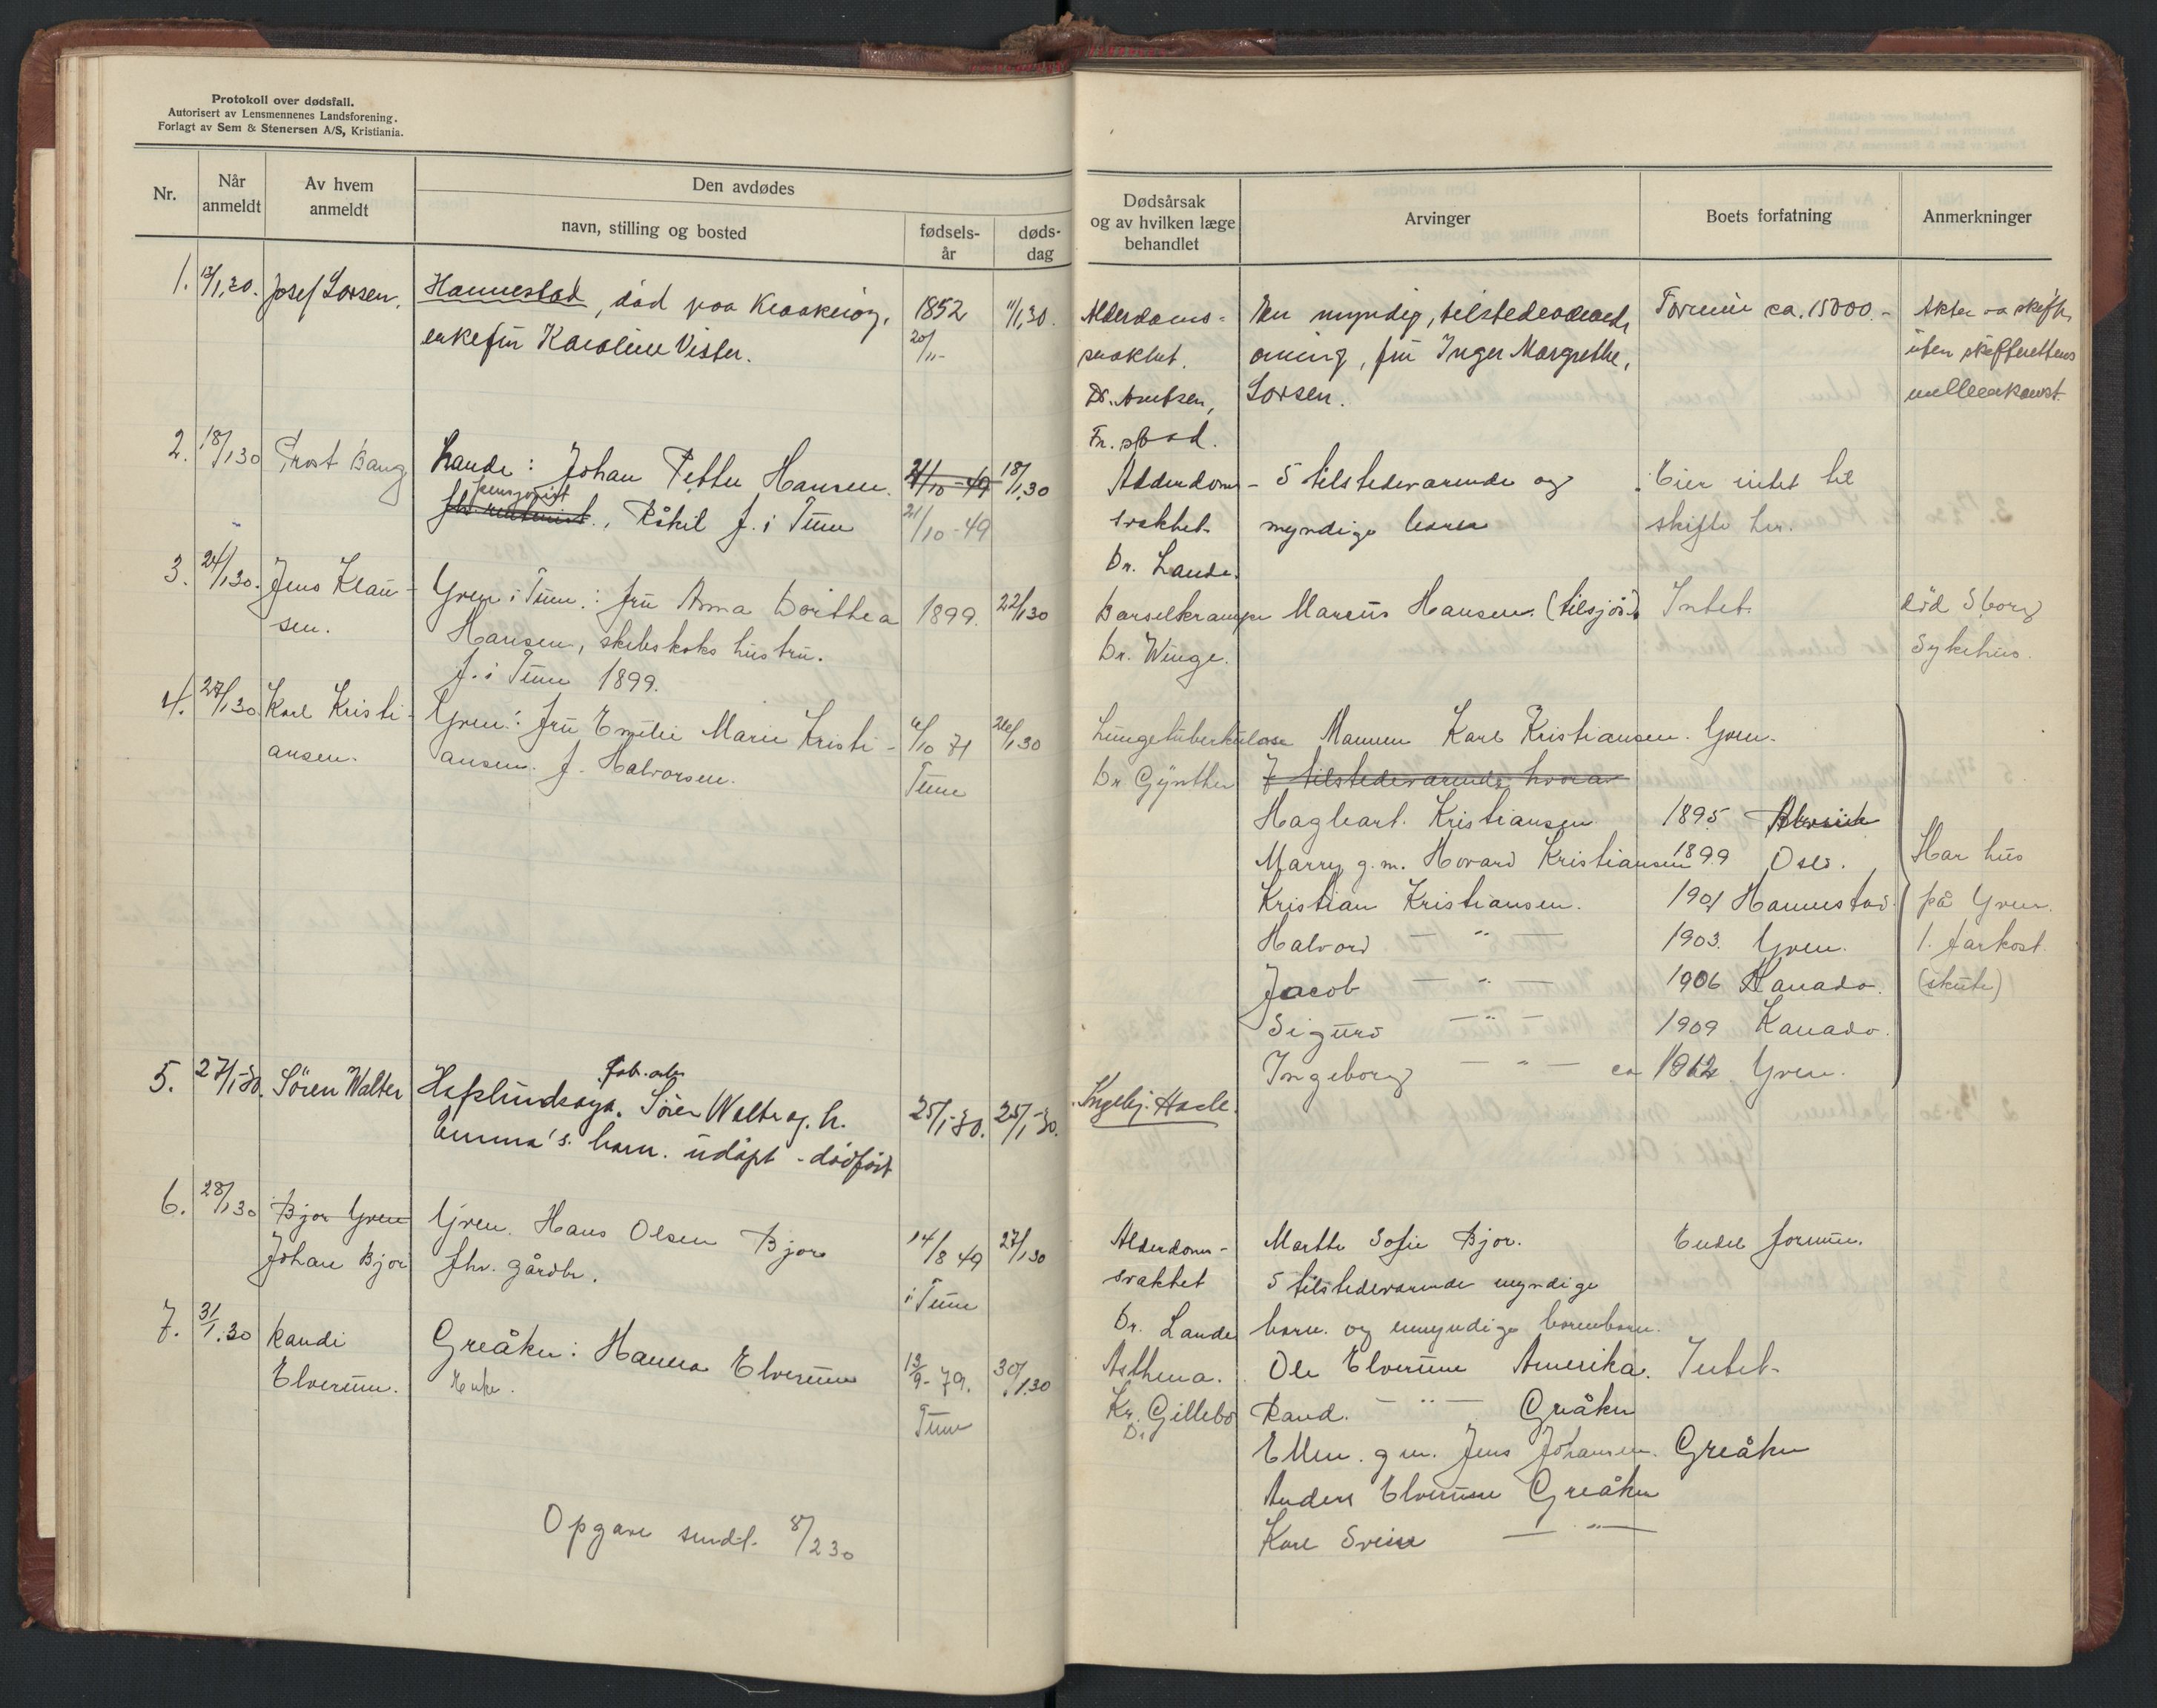 Protokoll over dødsfall.
Autorisert av Lensmennenes Landsforening.
Forlagt av Sem & Stenersen A/S, Kristiania.
Nr.
Når anmeldt
Av hvem anmeldt
Den avdødes
navn, stilling og bosted
fødsels-år
døds-dag
Dødsårsak og av hvilken læge behandlet
Arvinger
Boets forfatning
Anmerkninger
1. 13/1.30. Josef Larsen. Hannestad, død paa 1852 11/1.30. Alderdoms- En myndig, Formue ca. 15000.- Akter
enkefru Karoline Vister. 20/11 - svakhet. arving, fru Inger Margrethe, uten skifterettens
Dr. Arntsen, Larsen. mellemkomst.
Fr.stad.
2. 18/1 30 Prost Bang Lande: Johan Petter Hansen 21/10-49 18/1.30 Alderdoms- 5 tilstedevarende og Eier intet til
pensjonist
fhv. , Råkil f. i Tune 21/10-49 svakhet myndige barn skifte her.
Dr. Lande.
3. 24/1 30. Jens Klau- Yven i Tune: fru Anna Dorthea 1899. 22/1 30 Barselkrampe Marius Hansen. (tilsjøs) Intet. død Sborg
sen. Hansen, skibskoks hustru. Dr. Winge. Sykehus.
f. i Tune 1899.
4. 27/1 30 Karl Kristi- Yven: fru Emilie Marie Kristi- 6/10 71 26/1 30 Lungetuberkulose Mannen Karl Kristiansen. Yven.
ansen. ansen. f. Halvorsen. Tune Dr Gynther 7 tilstedevarende hvorav
Hagbart. Kristiansen 1895
Marry g.m. Hovard Kristiansen 1899 Oslo. Har hus
Kristian Kristiansen. 1901 Hannestad på Yven.
Halvard — " — 1903. Yven. 1. farkost.
Jacob — " — 1906 Kanada. (skute)
Sigurd — " — 1909 Kanada.
Ingeborg — " — ca 1912 Yven.
5. 27/1-30. Søren Walter Hafslundsøya. Fab.arb. Søren Walter og h. 25/1-30. 25/1-30. Ingebj. Hasle.
Emma's barn. udøpt - dødfødt
6. 28/1 30 Bjor Yven Yven. Hans Olsen Bjor 14/8 49 27/1 30 Alderdoms- Marthe Sofie Bjor. Endel formue.
Johan Bjor fhv. gårdbr. i Tune svakhet 5 tilstedevarende myndige
Dr. Lande barn. og umyndige barnebarn.
7. 31/1.30 Randi Greåker: Hanna Elverum 13/9-79. 30/1.30 Asthma. Ole Elverum Amerika. Intet-
Elverum. Enke. Tune Kr. Gillebo Rand. — " — Greåker
Dr Ellen. g m. Jens Johansen. Greåker
Anders Elverum Greåker
Kare Svein — " —
Opgave sendt. 8/2 30